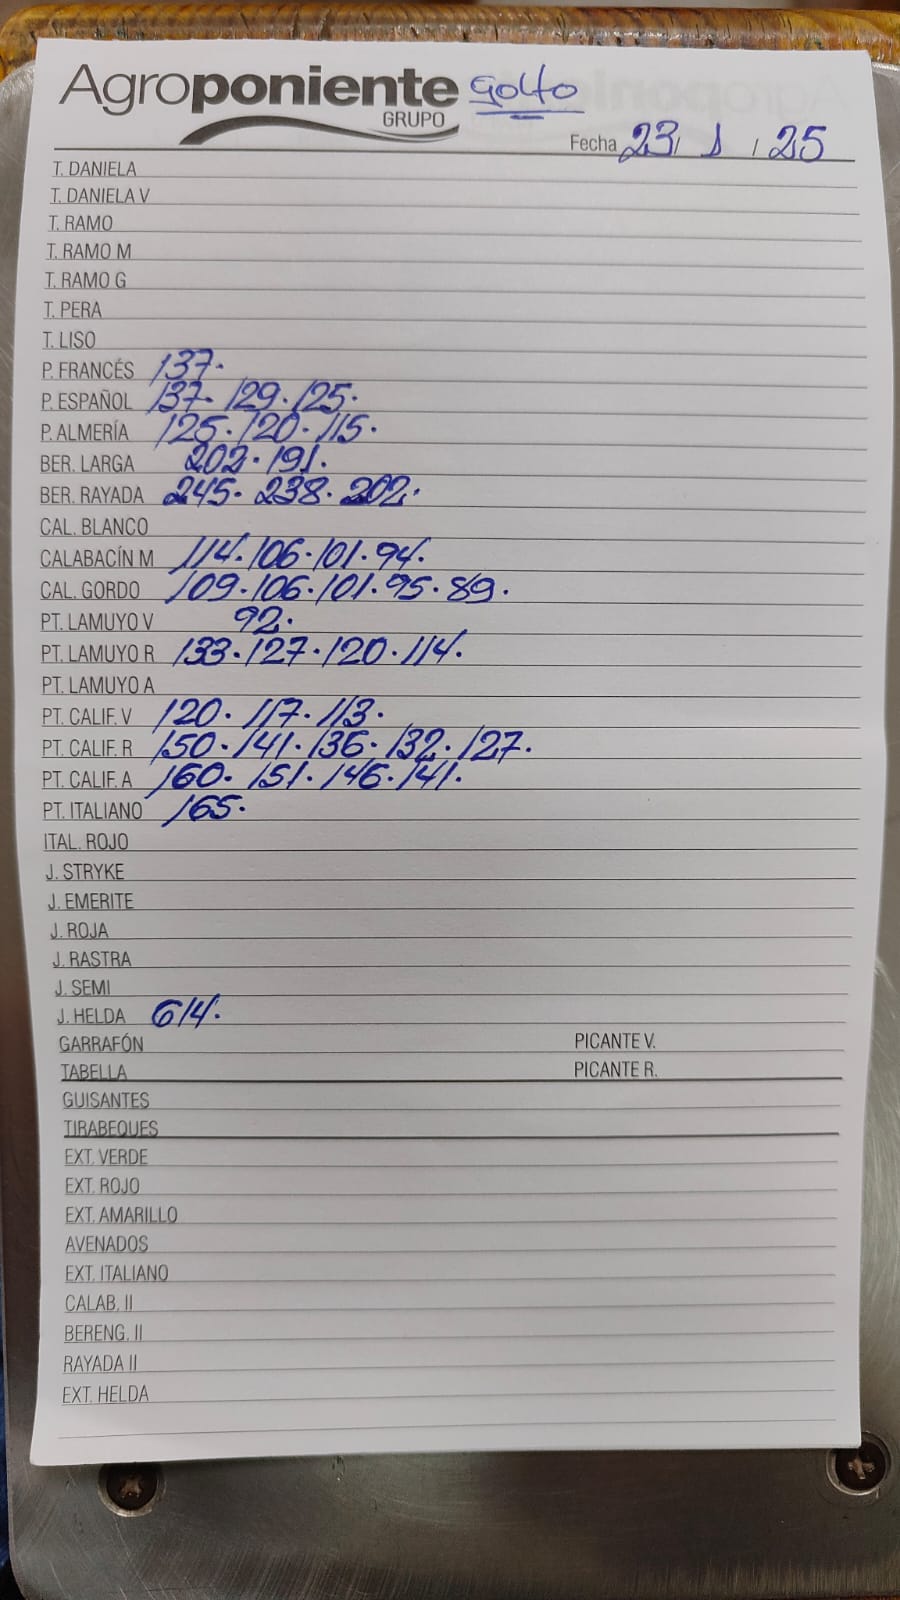 Agroponiente golfo
GRUPO
Fecha 23 / 1 / 25
T. DANIELA
T. DANIELA V
T. RAMO
T. RAMO M
T. RAMO G
T. PERA
T. LISO
P. FRANCÉS 137.
P. ESPAÑOL 137. 129. 125.
P. ALMERÍA 125. 120. 115.
BER. LARGA 202. 191.
BER. RAYADA 245. 238. 202.
CAL. BLANCO
CALABACÍN M 114. 106. 101. 94.
CAL. GORDO 109. 106. 101. 95. 89.
PT. LAMUYO V 92.
PT. LAMUYO R 133. 127. 120. 114.
PT. LAMUYO A
PT. CALIF. V 120. 117. 113.
PT. CALIF. R 150. 141. 136. 132. 127.
PT. CALIF. A 160. 151. 146. 141.
PT. ITALIANO 165.
ITAL. ROJO
J. STRYKE
J. EMERITE
J. ROJA
J. RASTRA
J. SEMI
J. HELDA 614.
GARRAFÓN PICANTE V.
TABELLA PICANTE R.
GUISANTES
TIRABEQUES
EXT. VERDE
EXT. ROJO
EXT. AMARILLO
AVENADOS
EXT. ITALIANO
CALAB. II
BERENG. II
RAYADA II
EXT. HELDA